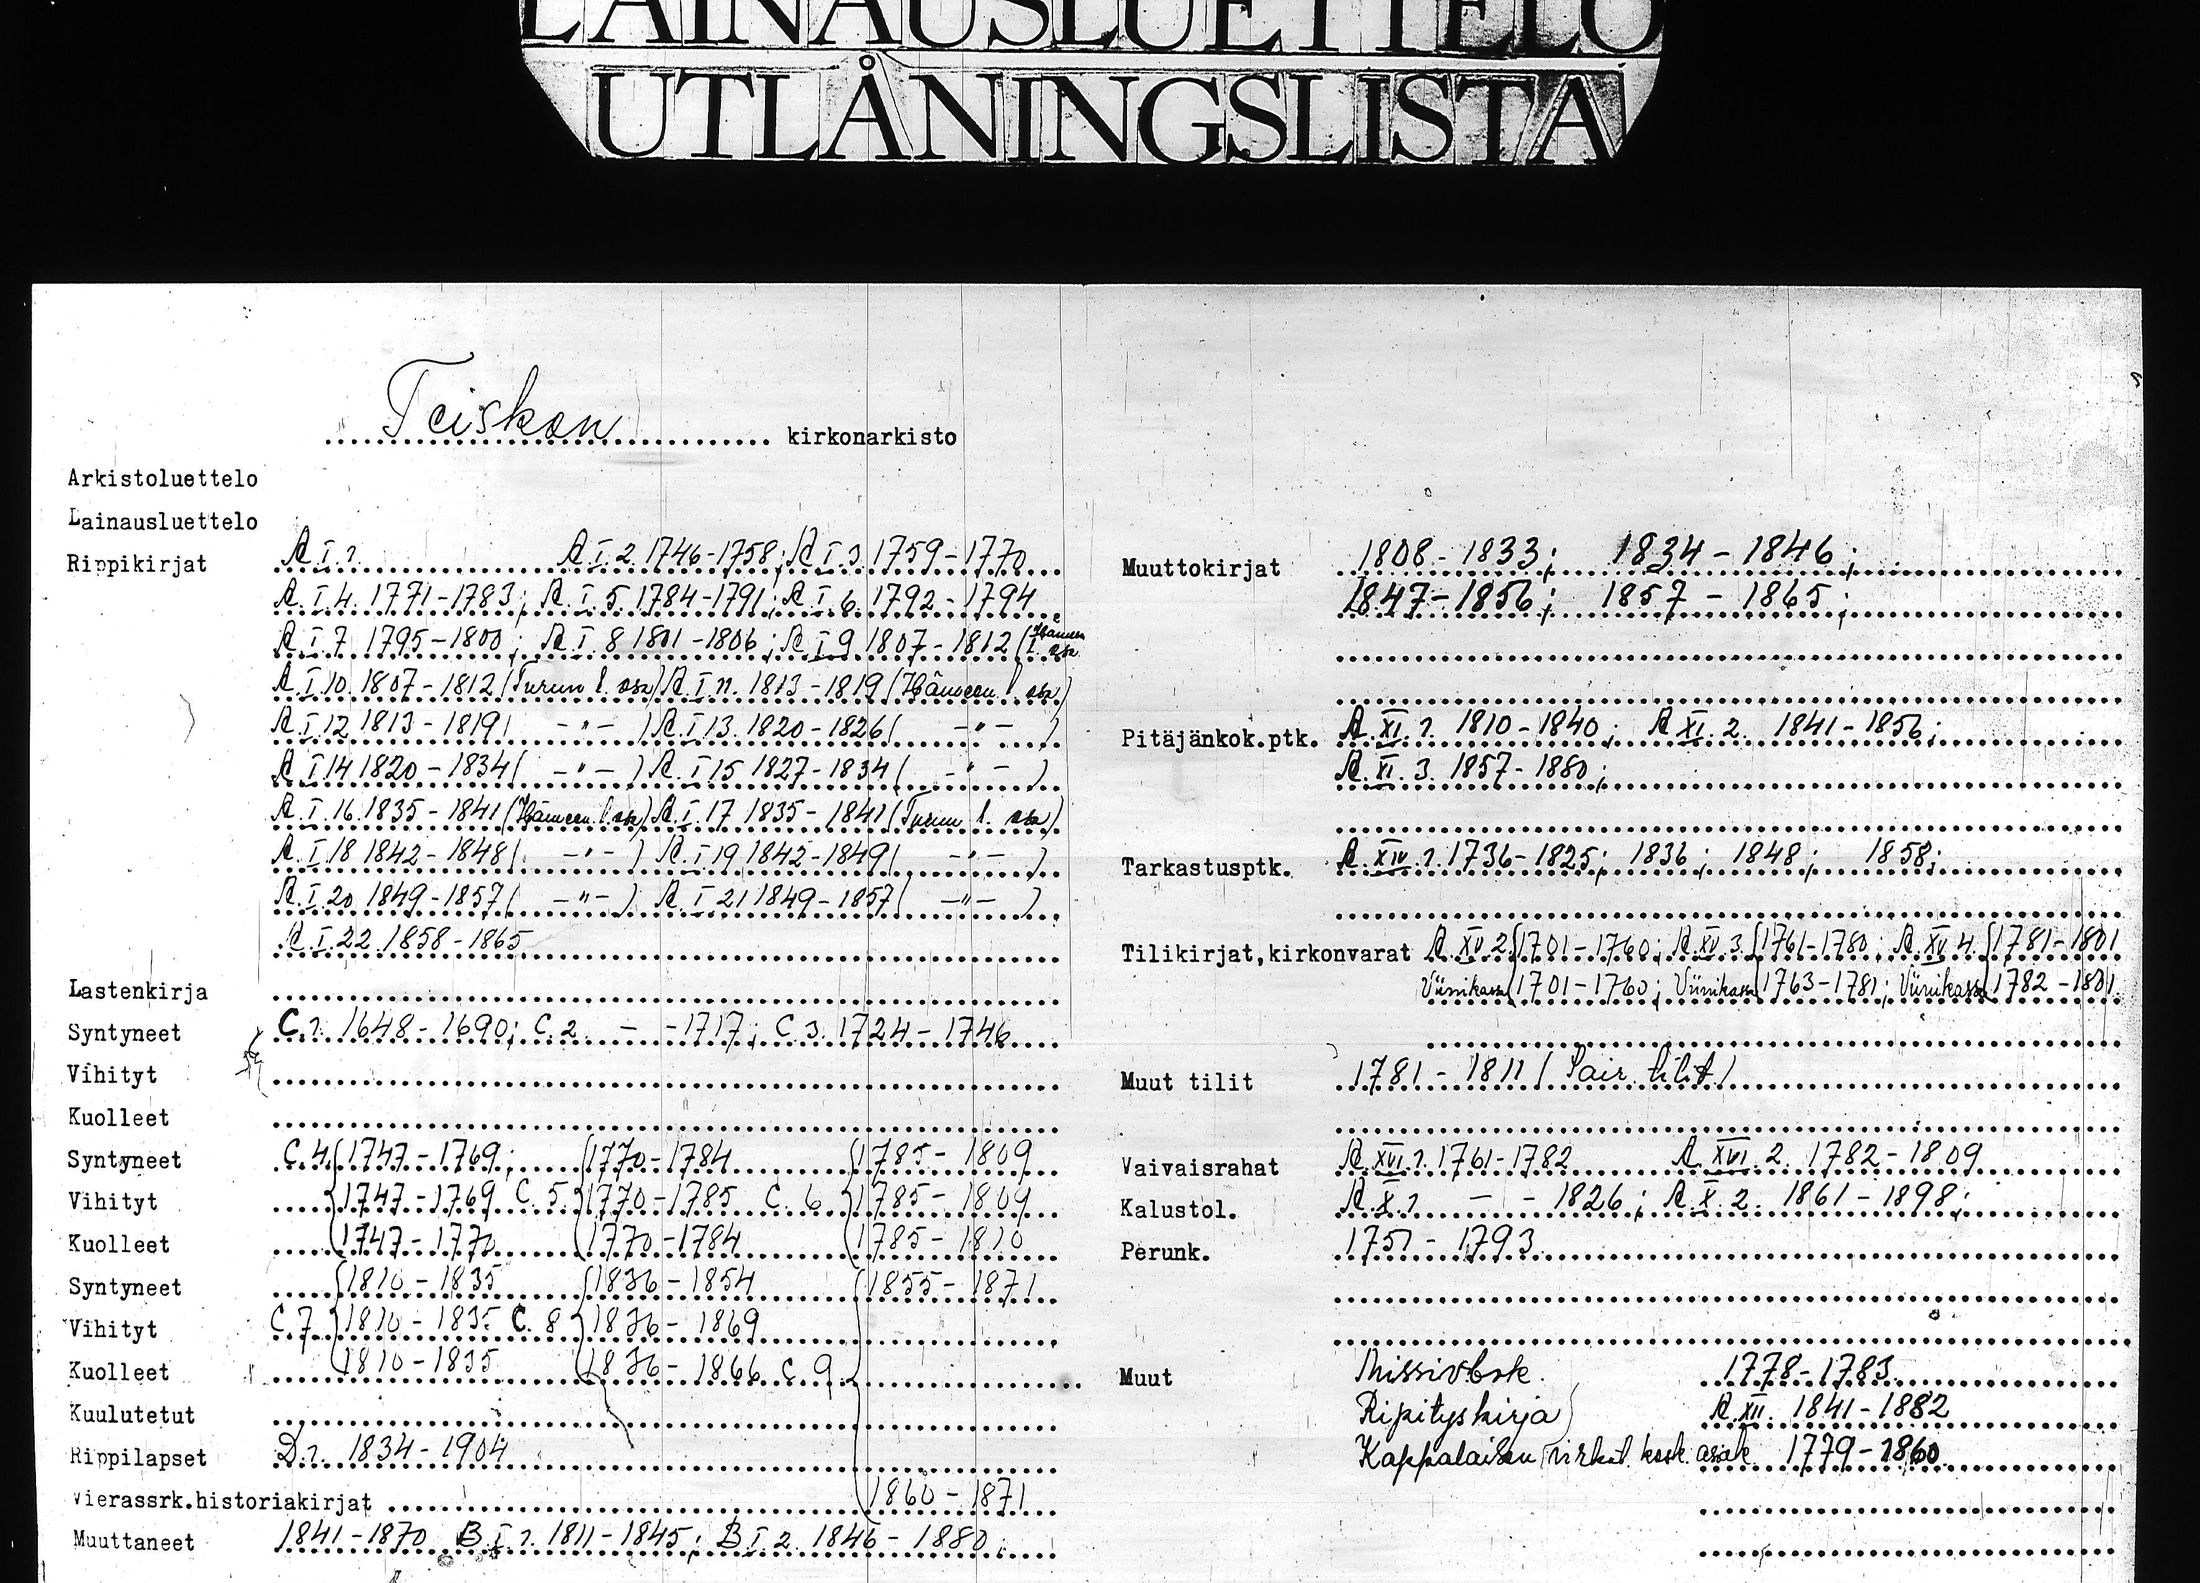 LAINAUSLUETTELO
UTLÅNINGSLISTA
Teiskon kirkonarkisto
Arkistoluettelo
Lainausluettelo
Rippikirjat A I 1. A I 2 1746-1758; A I 3 1759-1770
A I 4. 1771-1783; A I 5 1784-1791; A I 6 1792-1794
A I 7 1795-1800; A I 8 1801-1806; A I 9 1807-1812 (Hämeen l. osa
A I 10 1807-1812 (Turun l. osa) A I 11. 1813-1819 (Hämeen l osa)
A I 12 1813-1819 ( -"- ) A I 13. 1820-1826 ( -"- )
A I 14 1820-1834 ( -"- ) A I 15 1827-1834 ( -"- )
A I 16 1835-1841 (Hämeen l. osa) A I 17 1835-1841 (Turun l. osa)
A I 18 1842-1848 ( -"- ) A I 19 1842-1849 ( -"- )
A I 20 1849-1857 ( -"- ) A I 21 1849-1857 ( -"- )
A I 22 1858-1865
Lastenkirja
Syntyneet C.1. 1648-1690; C.2 - -1717; C.3. 1724-1746
Vihityt
Kuolleet
Syntyneet C.4 1747-1769; 1770-1784 1785-1809
Vihityt 1747-1769 C.5 1770-1785 C.6 1785-1809
Kuolleet 1747-1770 1770-1784 1785-1810
Syntyneet 1810-1835 1836-1854 1855-1871
Vihityt C.7 1810-1835 C.8 1836-1869
Kuolleet 1810-1835 1836-1866 C.9
Kuulutetut
Rippilapset D.1. 1834-1904
Vierassrk.historiakirjat 1860-1871
Muuttaneet 1841-1870 B I 1. 1811-1845; B I 2 1846-1880
Muuttokirjat 1808-1833; 1834-1846;
1847-1856; 1857-1865;
Pitäjänkok.ptk. A XI.1. 1810-1840; A XI.2. 1841-1856;
A XI.3. 1857-1880;
Tarkastusptk. A XIV.1. 1736-1825; 1836; 1848; 1858;
Tilikirjat,kirkonvarat A XV 2 1701-1760; A XV 3 1761-1780; A XV 4 1781-1801
Viinikassa 1701-1760; Viinikassa 1763-1781; Viinikassa 1782-1801
Muut tilit 1781-1811 (Sair. tilit)
Vaivaisrahat A XVI.1. 1761-1782 A XVI.2. 1782-1809
Kalustol. A X.1 - - 1826; A X.2. 1861-1898;
Perunk. 1751-1793
Muut Missivbok. 1778-1783
Ripityskirja A XII. 1841-1882
Kappalaisen virkat. kosk. asiak. 1779-1860